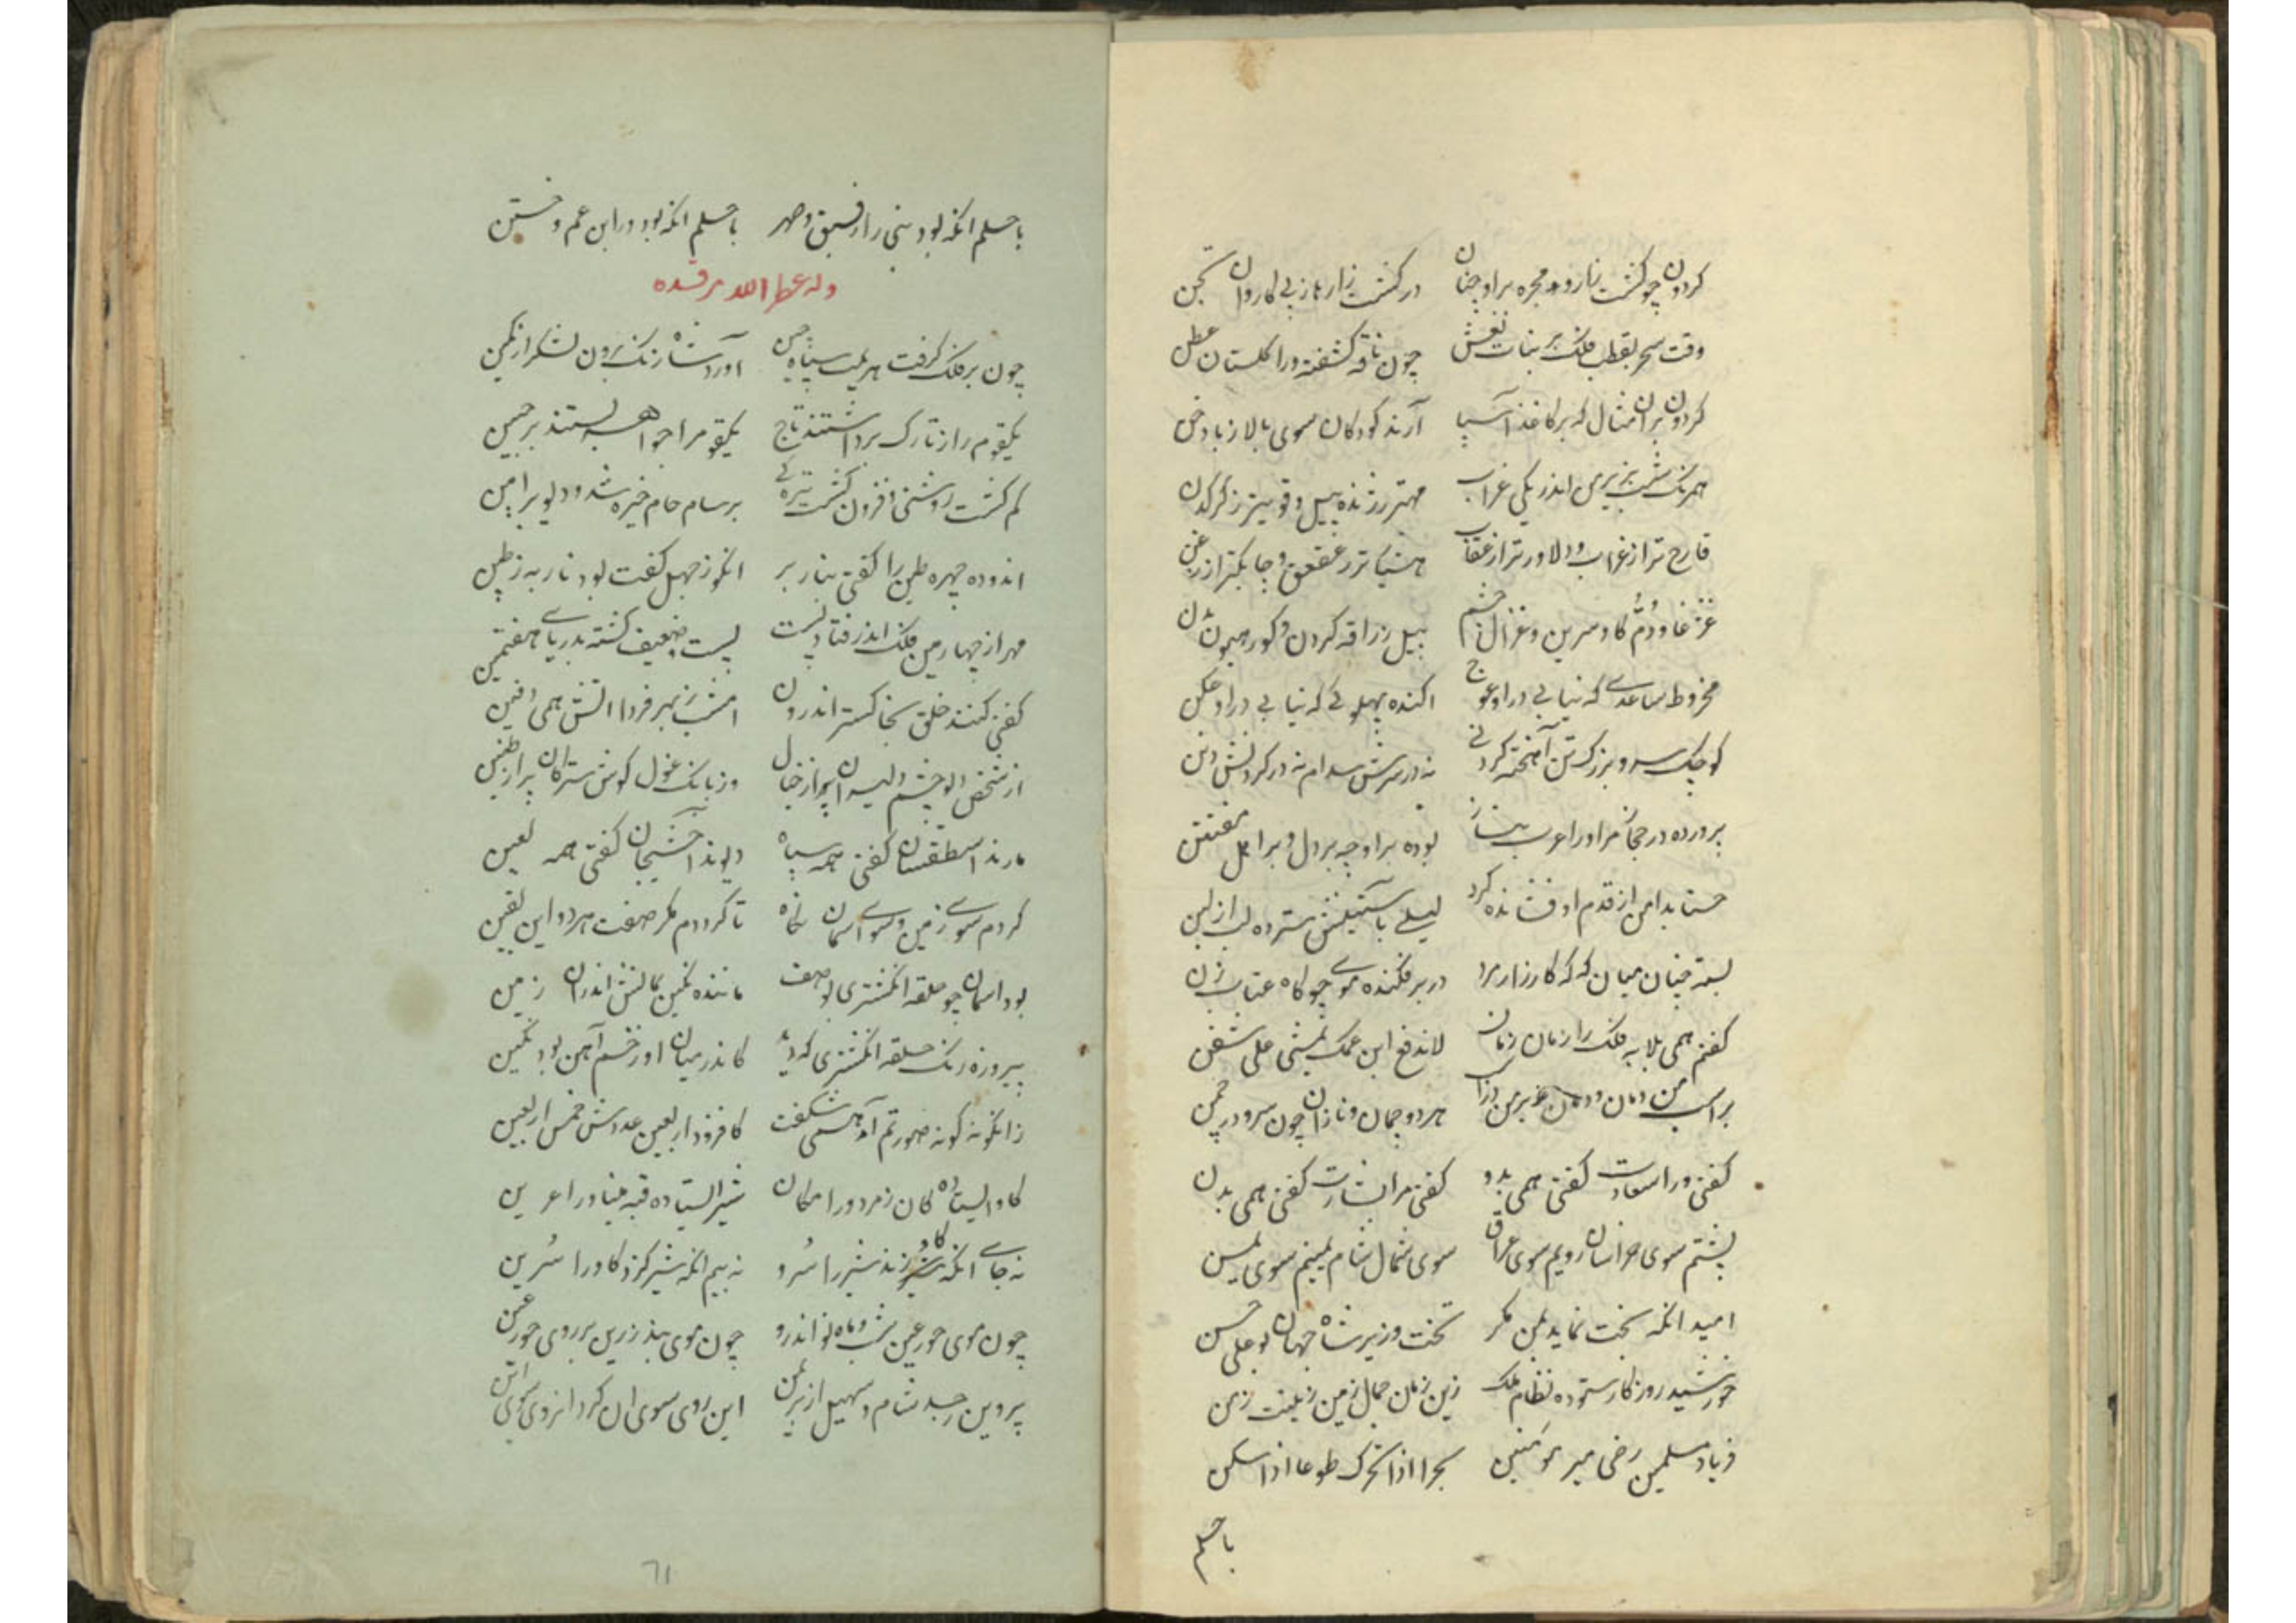 کردون چو کشت زار و مجره براو چنان در کشت زارها ز پی کاروان تجن
وقت سحر بقطب فلک بر بنات نعش چون ناقه کشفته ورا کلستان عطن
کردون بران مثال که برکاغذ آسیا آرند کودکان سوی بالا ز بادخن
همرنک شب بزیر من اندر یکی غراب مهتر ز ژنده پیل و قویتر ز کرکدن
فارح تر از غراب و دلاورتر از عقاب هشیارتر ز عقعق و چابکتر از زغن
غژغا و دُم کاو سرین و غزال چشم پیل زرافه کردن و کور هیون بدن
مخروط ساعدی که نیابی دراو عوج اکنده پهلوئی که نیابی دراو عکن
کوچک سر و بزرک تن آهخته کردنی نه در سرش سدام نه در کردنش
پرورده در حجاز مر اورا عرب بناز بوده براو چه بر دل و بر اهل مفتتن
حسنا بدامن از قدم او فشانده کرد لیلی باستینش سترده لب از لبن
بسته چنان میان که که کارزار مرد در بر فکنده موی چو کاه عتاب زن
کفتم همی بلابه فلک را زمان زمان لاندفع ابن عمک یمشی علی شفن
براسب من دمان و دمان بر من هردو چمان و نازان چون سرو در چمن
کفتی ورا سعادت کفتی همی بدو کفتی مرا بشارت کفتی همی بدن
پشتم سوی خراسان رویم سوی عراق سوی شمال شام یمینم سوی یمن
امید انکه بخت نماید بمن مکر تخت وزیر شاه جهان بوعلی حسن
خورشید روزکار ستوده نظام ملک زین زمان جمال زمین زینت زمن
فریاد مسلمین رضی میر مؤمنین بحرا اذا تحرک طوعا اذا سکن
باحلم
باحلم انکه بود نبی را رفیق و صهر باحلم انکه بود ورا ابن عم و ختن
وله عطر الله مرقده
چون بر فلک کرفت هزیمت سپاه چین آورد شاه زنک برون لشکر از کمین
یکقوم را ز تارک برداشتند تاج یکقوم را جواهر بستند بر جبین
کم کشت روشنی افزون کشت تیره کی بر سام حام خیره شد و دیو بر امین
اندوده چهره طین را کفتی بنار بر انکو ز جهل کفت بود نار به ز طین
مهر از چهارمین فلک اندر فتاد پست پست و ضعیف کشته بدریای هفتمین
کفتی کنند خلق بخاکستر اندرون امشب ز بهر فردا اتش همی دفین
از شخص دیو چشم دلیران پر از خیال وز بانک غول کوش سترکان پر از طنین
مارند اسطقسان کفتی همه سیاه دیوند آخشیجان کفتی همه لعین
کردم سوی زمین و سوی آسمان نکاه تا کرددم مکر صفت هردو این یقین
بود اسمان چو حلقه انکشتری بوصف ماننده نکین بمیانش اندرون زمین
پیروزه رنک حلقه انکشتری که دید کاندر میان او ز خشم آهن بود نکین
زانکونه کونه صورتم آمد همی شکفت کافزود اربعین عددش خمس اربعین
کاو ایستاده کان زمرد ورا مکان شیر ایستاده قبه مینا ورا عرین
نه جای انکه کاو زند شیر را سُرو نه بیم انکه شیر کزد کاو را سُرین
چون موی حور عین شب و ماه نو اندرو چون موی بند زرین بر روی حور عین
پروین ز حد شام و سهیل از بر یمن این روی سوی ان کرد انروی سوی این
٦١